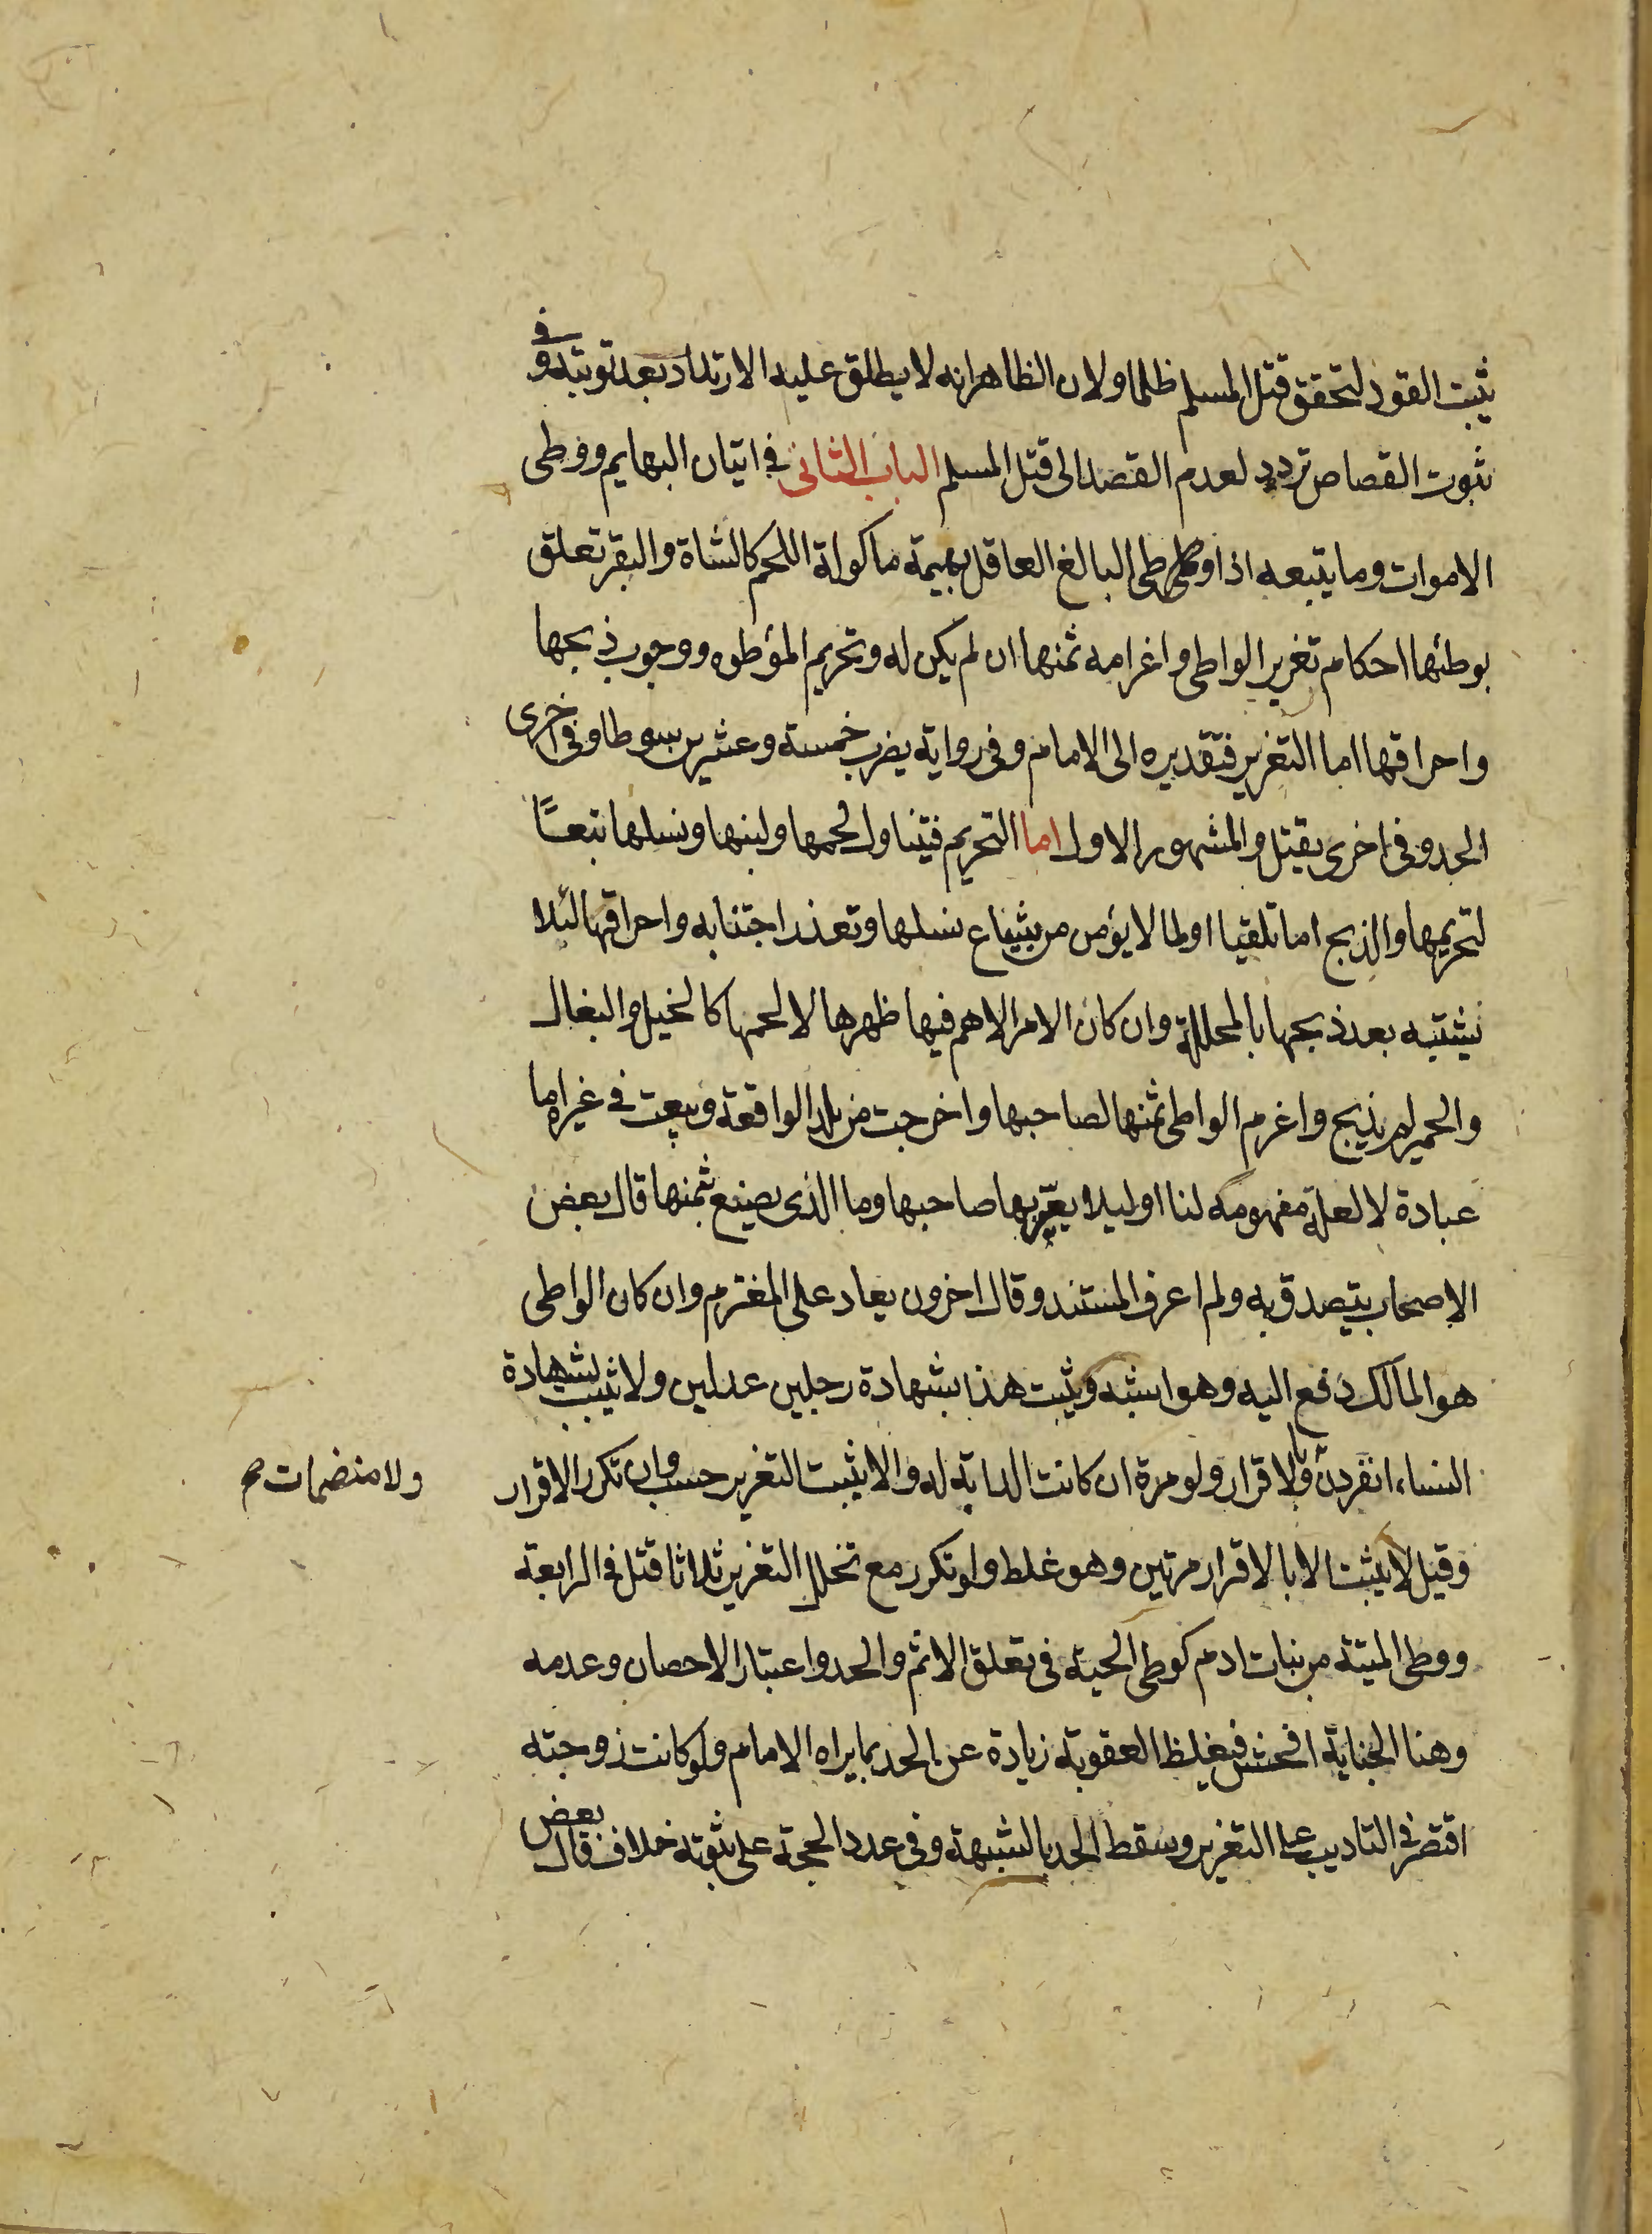 يثبت القود لتحقق قتل المسلم ظلما ولان الظاهر انه لا يطلق عليه الارتداد بعد توبته وفي
ثبوت القصاص تردد لعدم القصد الى قتل المسلم الباب الثانى في اتيان البهايم ووطى
الاموات وما يتبعه اذا وطى البالغ العاقل بهيمة ماكولة اللحم كالشاة والبقر تعلق
بوطئها احكام تغرير الواطى واغرامه ثمنها ان لم يكن له وتحريم المؤطوه ووجوب ذبحها
واحراقها اما التغرير فتقديره الى الامام وفى رواية يضرب خمسة وعشرين سوطا وفى اخرى
الحد وفى اخرى يقتل والمشهور الاول اما التحريم فيتناول لحمها ولبنها ونسلها تبعًا
لتحريمها والذبح اما تلقيا اولما لا يؤمن من شياع نسلها وتعذر اجتنابه واحراقها لئلا
يشتبه بعد ذبحها بالمحللة وان كان الامر الاهم فيها ظهرها لا لحمها كالخيل والبغال
والحمير لم تذبح واغرم الواطى ثمنها لصاحبها واخرجت من بلد الواقعة وبيعت في غيره اما
عبادة لا لعلة مفهومة لنا او ليلا يعيّر بها صاحبها وما الذى يصنع بثمنها قال بعض
الاصحاب يتصدق به ولم اعرف المستند وقال اخرون يعاد على المغترم وان كان الواطى
هو المالك دفع اليه وهو اشبه ويثبت هذا بشهادة رجلين عدلين ولا يثبت بشهادة
النساء انفردن وبالاقرار ولو مرة ان كانت الدابة له والا يثبت التغرير حسب وان تكرر الاقرار
ولا منضمات صح
وقيل لا يثبت الا بالاقرار مرتين وهو غلط ولو تكرر مع تخلل التغرير ثلاثا قتل في الرابعة
ووطى الميتة من بنات ادم كوطى الحية فى تعلق الاثم والحد واعتبار الاحصان وعدمه
وهنا الجناية افحش فيغلظ العقوبة زيادة عن الحد بما يراه الامام ولو كانت زوجته
اقتصر في التاديب على التغرير وسقط الحد بالشبهة وفى عدد الحجة على ثبوته خلاف قال بعض